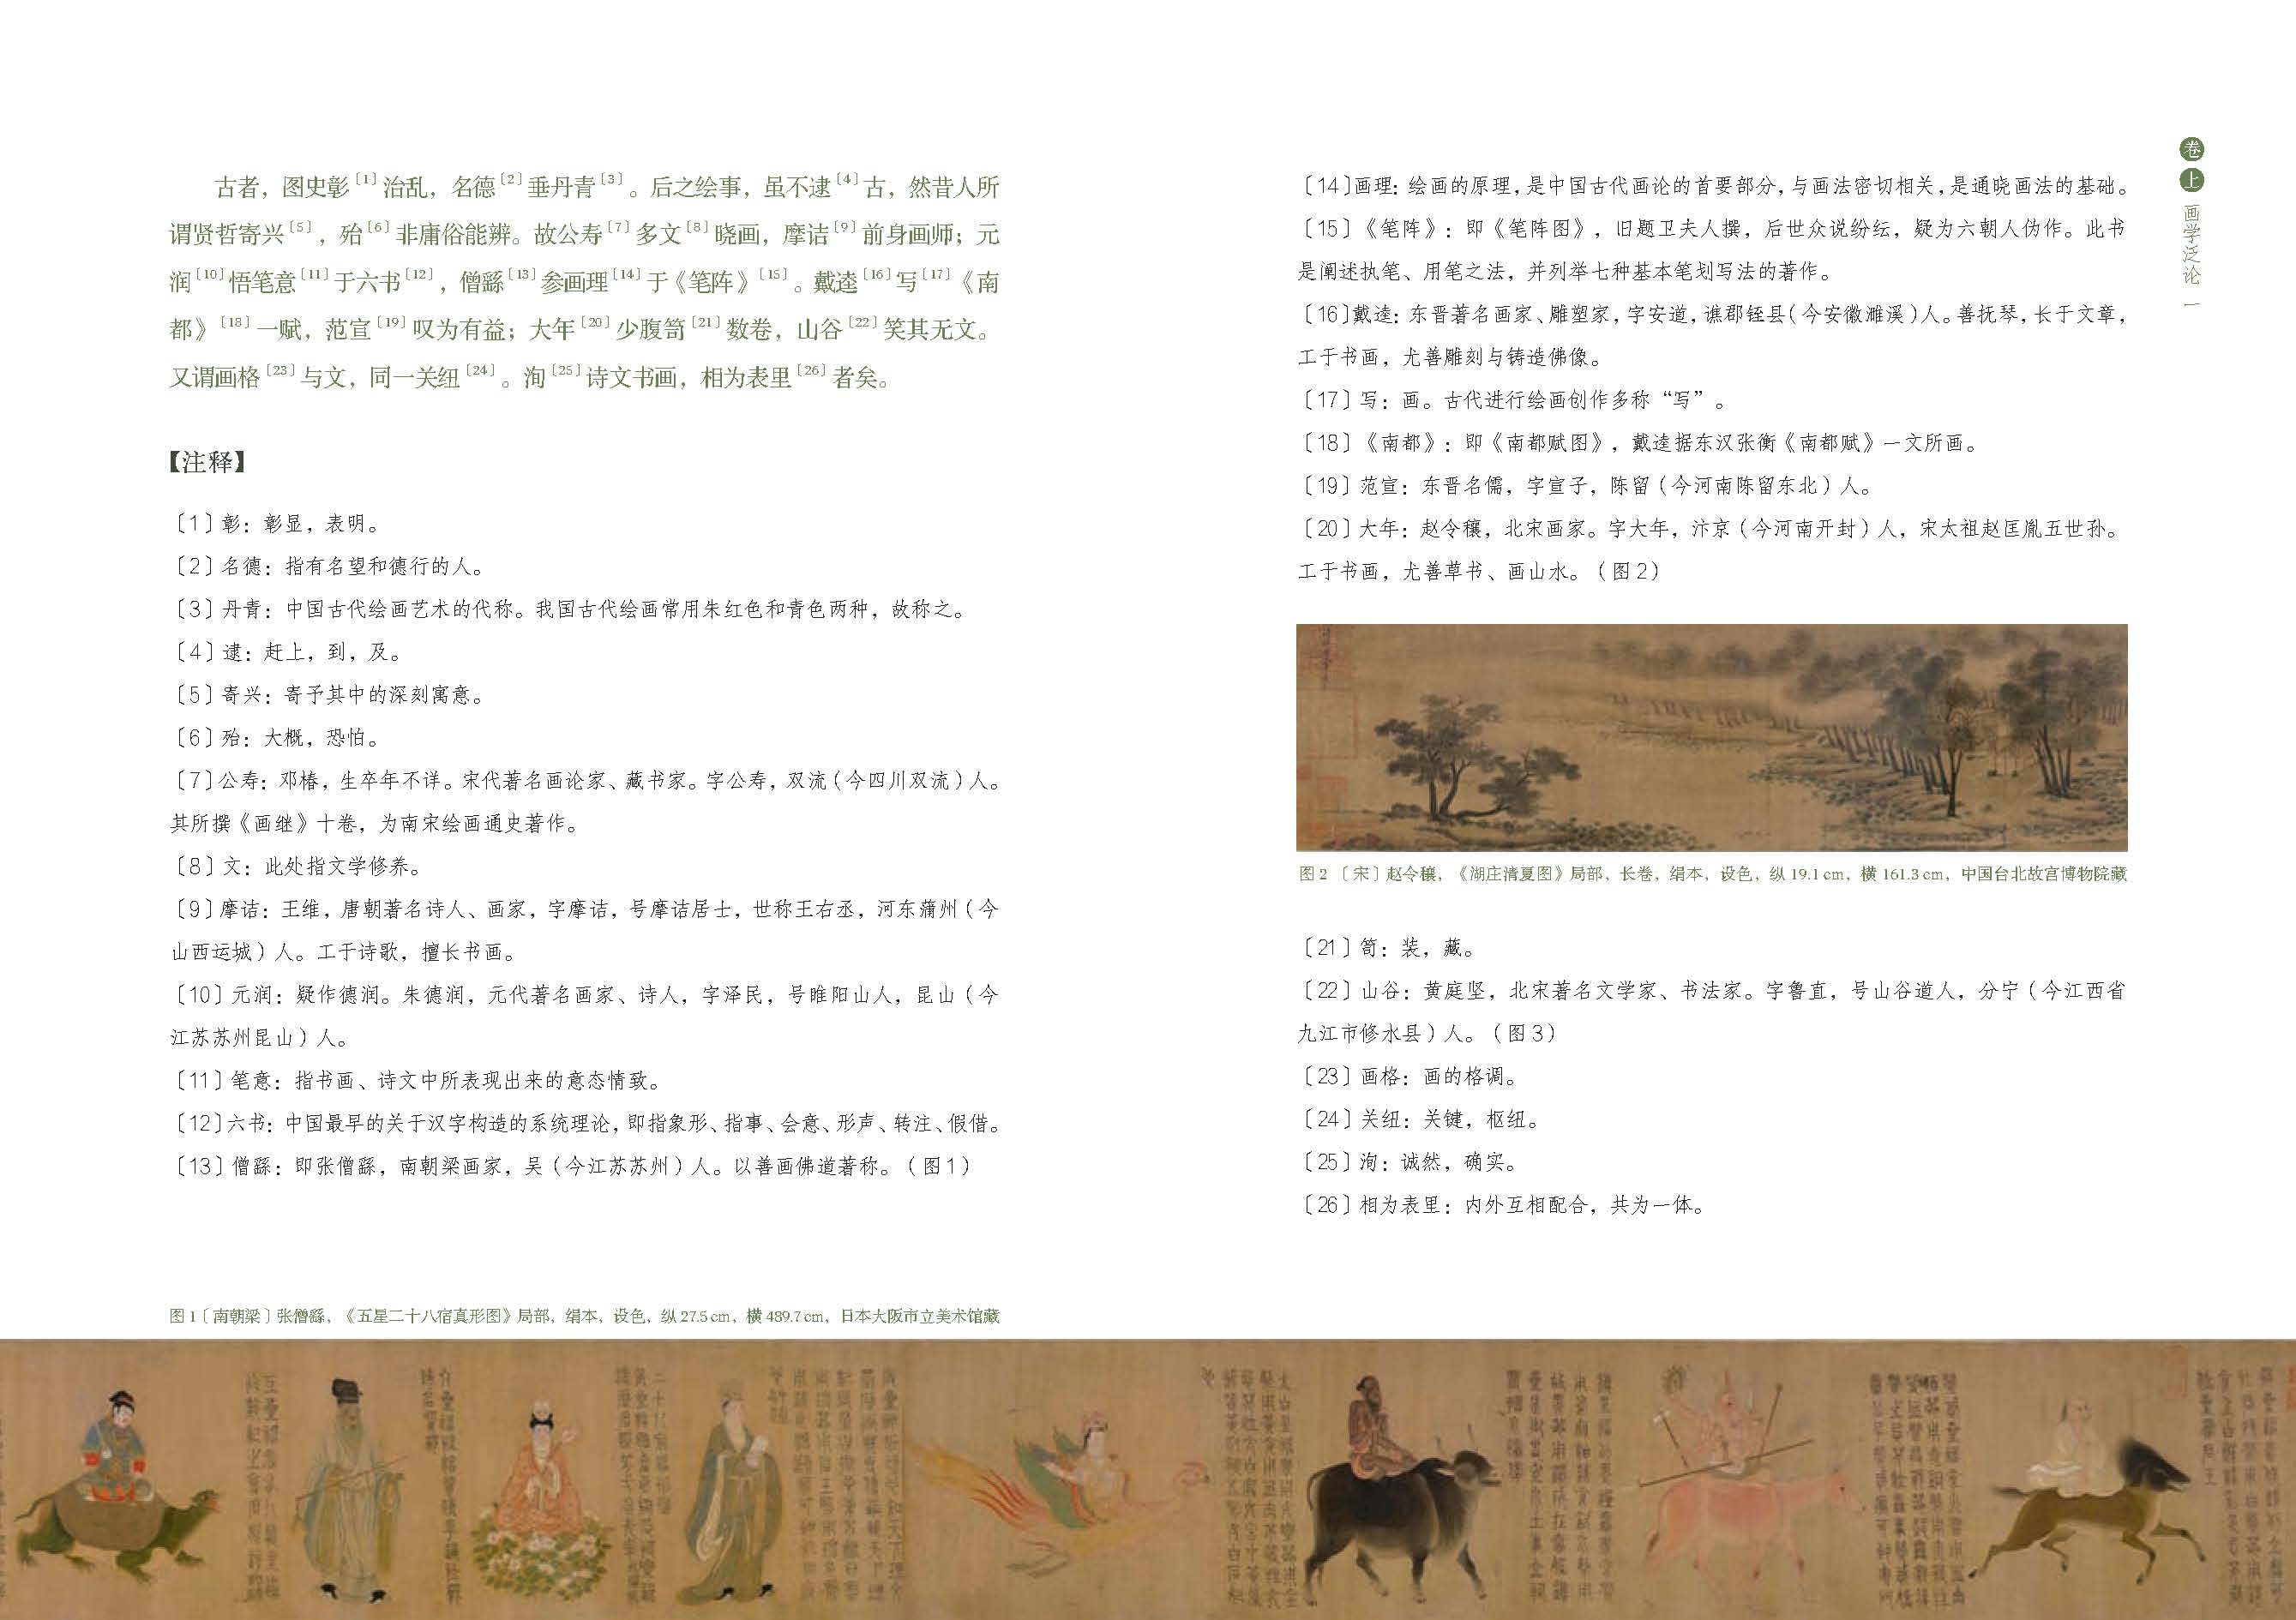 古者，图史彰〔1〕治乱，名德〔2〕垂丹青〔3〕。后之绘事，虽不逮〔4〕古，然昔人所
谓贤哲寄兴〔5〕，殆〔6〕非庸俗能辨。故公寿〔7〕多文〔8〕晓画，摩诘〔9〕前身画师；元
润〔10〕悟笔意〔11〕于六书〔12〕，僧繇〔13〕参画理〔14〕于《笔阵》〔15〕。戴逵〔16〕写〔17〕《南
都》〔18〕一赋，范宣〔19〕叹为有益；大年〔20〕少腹笥〔21〕数卷，山谷〔22〕笑其无文。
又谓画格〔23〕与文，同一关纽〔24〕。洵〔25〕诗文书画，相为表里〔26〕者矣。
【注释】
〔1〕彰：彰显，表明。
〔2〕名德：指有名望和德行的人。
〔3〕丹青：中国古代绘画艺术的代称。我国古代绘画常用朱红色和青色两种，故称之。
〔4〕逮：赶上，到，及。
〔5〕寄兴：寄予其中的深刻寓意。
〔6〕殆：大概，恐怕。
〔7〕公寿：邓椿，生卒年不详。宋代著名画论家、藏书家。字公寿，双流（今四川双流）人。
其所撰《画继》十卷，为南宋绘画通史著作。
〔8〕文：此处指文学修养。
〔9〕摩诘：王维，唐朝著名诗人、画家，字摩诘，号摩诘居士，世称王右丞，河东蒲州（今
山西运城）人。工于诗歌，擅长书画。
〔10〕元润：疑作德润。朱德润，元代著名画家、诗人，字泽民，号睢阳山人，昆山（今
江苏苏州昆山）人。
〔11〕笔意：指书画、诗文中所表现出来的意态情致。
〔12〕六书：中国最早的关于汉字构造的系统理论，即指象形、指事、会意、形声、转注、假借。
〔13〕僧繇：即张僧繇，南朝梁画家，吴（今江苏苏州）人。以善画佛道著称。（图1）
图1〔南朝梁〕张僧繇，《五星二十八宿真形图》局部，绢本，设色，纵27.5cm，横489.7cm，日本大阪市立美术馆藏
卷上 画学泛论 一
〔14〕画理：绘画的原理，是中国古代画论的首要部分，与画法密切相关，是通晓画法的基础。
〔15〕《笔阵》：即《笔阵图》，旧题卫夫人撰，后世众说纷纭，疑为六朝人伪作。此书
是阐述执笔、用笔之法，并列举七种基本笔划写法的著作。
〔16〕戴逵：东晋著名画家、雕塑家，字安道，谯郡铚县（今安徽濉溪）人。善抚琴，长于文章，
工于书画，尤善雕刻与铸造佛像。
〔17〕写：画。古代进行绘画创作多称“写”。
〔18〕《南都》：即《南都赋图》，戴逵据东汉张衡《南都赋》一文所画。
〔19〕范宣：东晋名儒，字宣子，陈留（今河南陈留东北）人。
〔20〕大年：赵令穰，北宋画家。字大年，汴京（今河南开封）人，宋太祖赵匡胤五世孙。
工于书画，尤善草书、画山水。（图2）
图2〔宋〕赵令穰，《湖庄清夏图》局部，长卷，绢本，设色，纵19.1cm，横161.3cm，中国台北故宫博物院藏
〔21〕笥：装，藏。
〔22〕山谷：黄庭坚，北宋著名文学家、书法家。字鲁直，号山谷道人，分宁（今江西省
九江市修水县）人。（图3）
〔23〕画格：画的格调。
〔24〕关纽：关键，枢纽。
〔25〕洵：诚然，确实。
〔26〕相为表里：内外互相配合，共为一体。